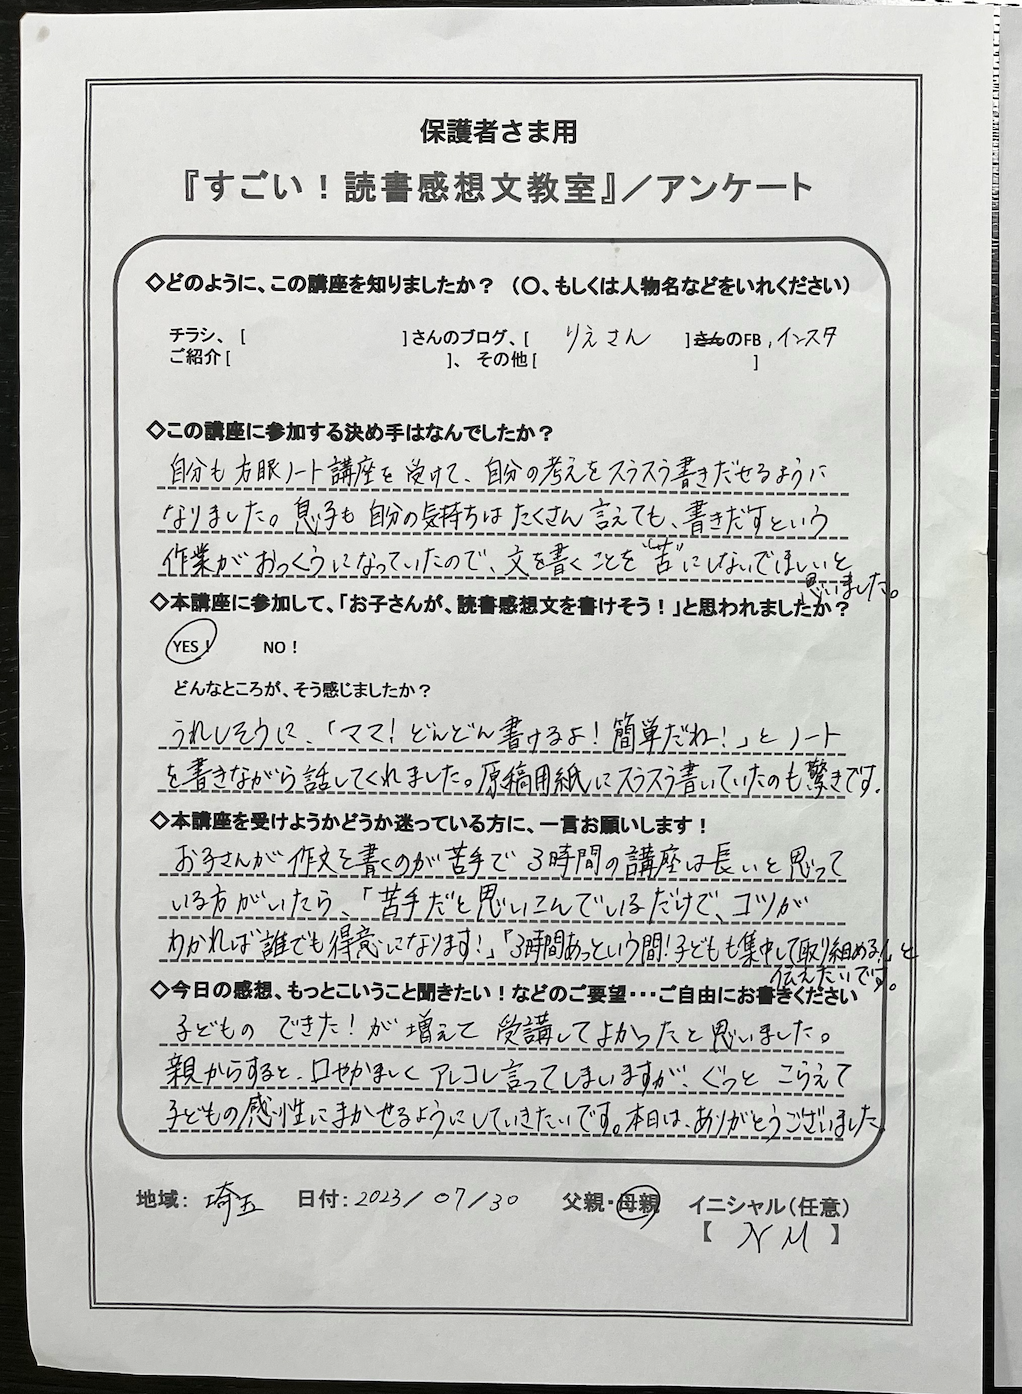 保護者さま用
『すごい！読書感想文教室』／アンケート
◇どのように、この講座を知りましたか？（〇、もしくは人物名などをいれください）
チラシ、[　　　　　]さんのブログ、[　りえさん　]さんのFB，インスタ
ご紹介[　　　　　]、その他[　　　　　]
◇この講座に参加する決め手はなんでしたか？
自分も方眼ノート講座を受けて、自分の考えをスラスラ書きだせるように
なりました。息子も自分の気持ちはたくさん言えても、書きだすという
作業がおっくうになっていたので、文を書くことを“苦”にしないでほしいと
思いました。
◇本講座に参加して、「お子さんが、読書感想文を書けそう！」と思われましたか？
YES！　NO！
どんなところが、そう感じましたか？
うれしそうに、「ママ！どんどん書けるよ！簡単だね！」とノート
を書きながら話してくれました。原稿用紙にスラスラ書いていたのも驚きです。
◇本講座を受けようかどうか迷っている方に、一言お願いします！
お子さんが作文を書くのが苦手で３時間の講座は長いと思って
いる方がいたら、「苦手だと思いこんでいるだけで、コツが
わかれば誰でも得意になります！」「３時間あっという間！子どもも集中して取り組める！」と
伝えたいです。
◇今日の感想、もっとこいうこと聞きたい！などのご要望・・・ご自由にお書きください
子どもの できた！が増えて 受講してよかったと思いました。
親からすると、口やかましくアレコレ言ってしまいますが、ぐっと こらえて
子どもの感性にまかせるようにしていきたいです。本日は、ありがとうございました。
地域：埼玉　日付：2023/07/30　父親・母親　イニシャル（任意）
【　N M　】